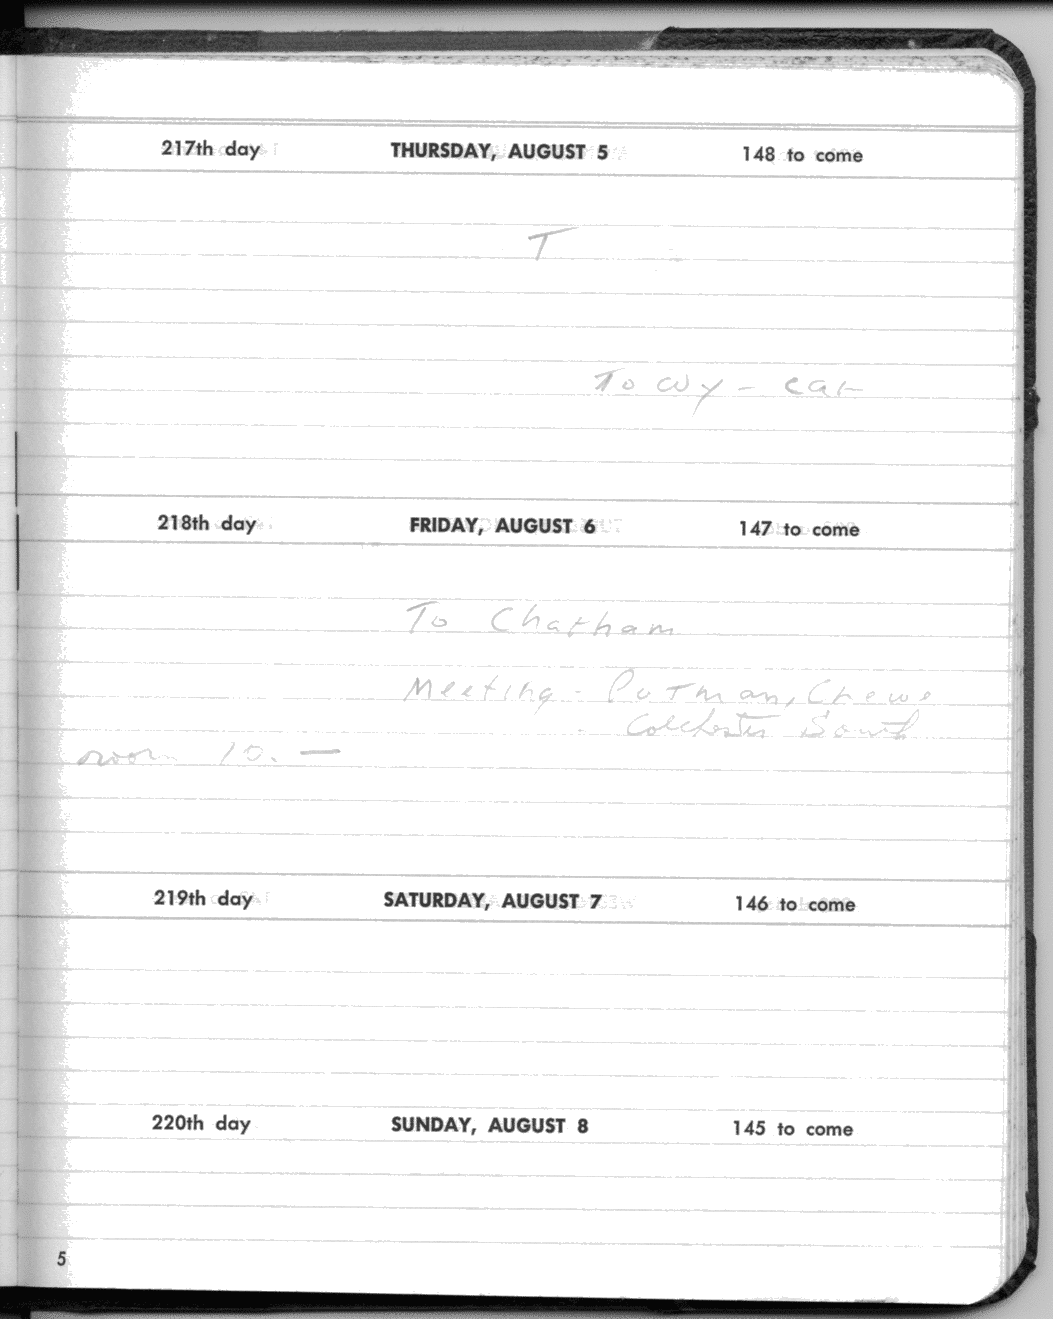 217th day THURSDAY, AUGUST 5 148 to come
T
To wy - car
218th day FRIDAY, AUGUST 6 147 to come
To Chatham
Meeting - Putman, Crewe
Colchester South
room 10. —
219th day SATURDAY, AUGUST 7 146 to come
220th day SUNDAY, AUGUST 8 145 to come
5